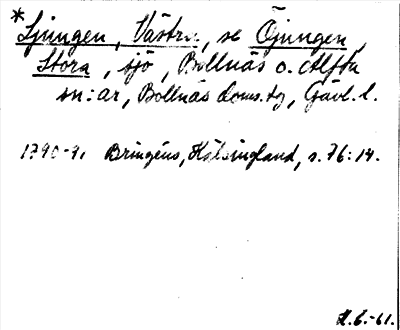 * Ljungen, Västra, se Öjungen,
Stora, sjö, Bollnäs o. Alfta
sn:ar, Bollnäs doms.tg, Gävl. l.
1790-91 Bringéus, Hälsingland, s. 76:14.
H.G.-61.